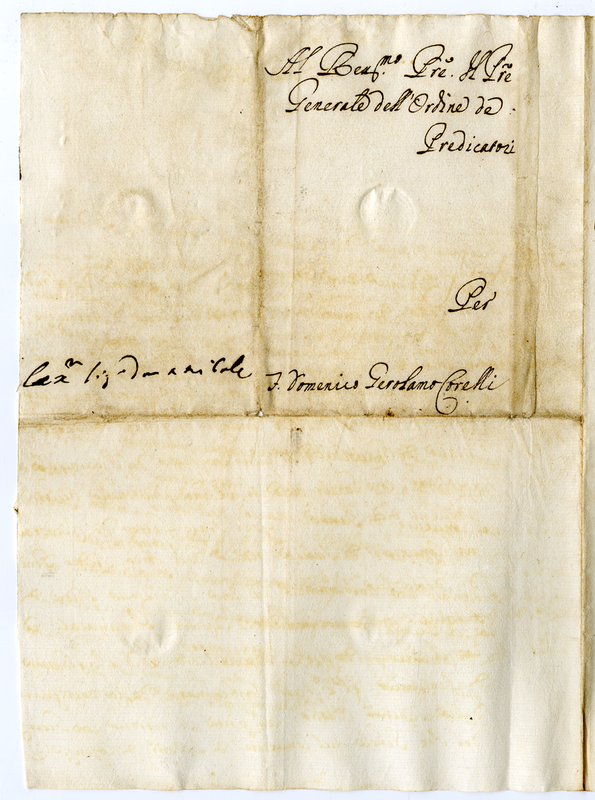 Al Rea.mo Pre. Il Pre
Generale dell'Ordine de
Predicatori
Per
F. Domenico Gerolamo Corelli